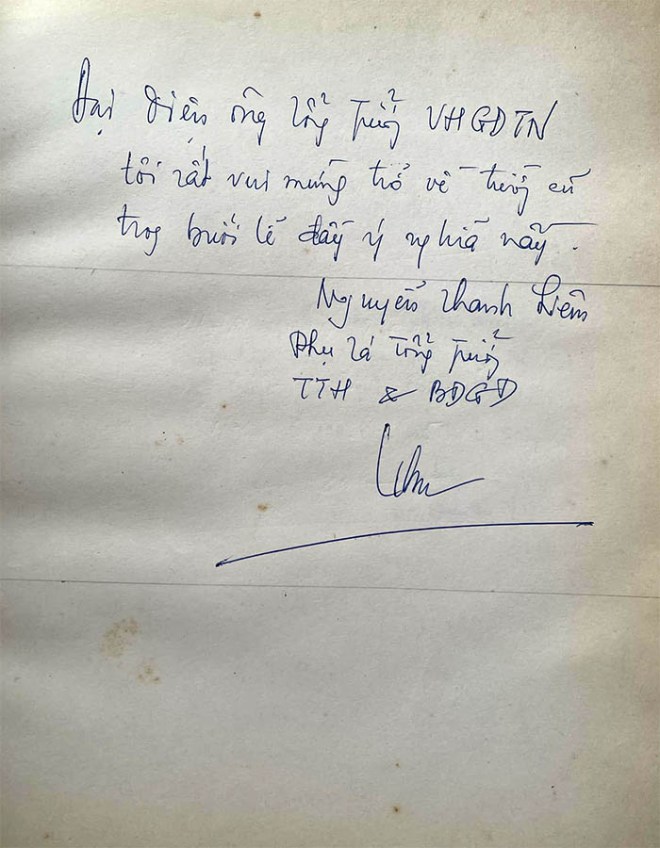 Đại diện ông Tổng Trưởng VHGDTN
tôi rất vui mừng trở về trường cũ
trong buổi lễ đầy ý nghĩa này.
Nguyễn Thanh Liêm
Phụ tá Tổng Trưởng
TTH & BDGD